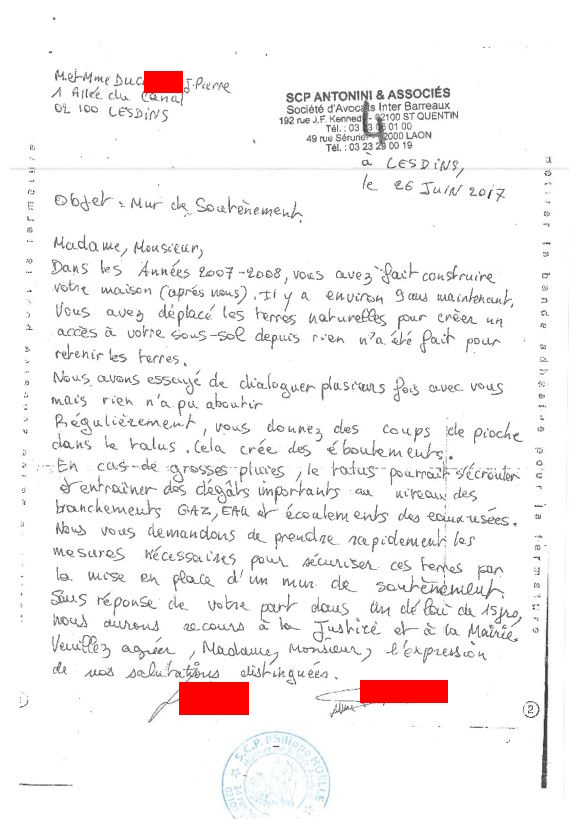 M. et Mme DUC J. Pierre
1 Allée du Canal
02 100 LESDINS
SCP ANTONINI & ASSOCIÉS
Société d'Avocats Inter Barreaux
192 rue J.F. Kennedy - 02100 ST QUENTIN
Tél. : 03 23 06 01 00
49 rue Sérurier 02000 LAON
Tél. : 03 23 23 00 19
4
à LESDINS,
le 26 Juin 2017
Objet : Mur de Soutènement
Madame, Monsieur,
Dans les Années 2007-2008, vous avez fait construire
votre maison (après nous). Il y a environ 9 ans maintenant.
Vous avez déplacé les terres naturelles pour créer un
accès à votre sous-sol depuis rien n'a été fait pour
retenir les terres.
Nous avons essayé de dialoguer plusieurs fois avec vous
mais rien n'a pu aboutir
Régulièrement, vous donnez des coups de pioche
dans le talus. Cela crée des éboulements.
En cas de grosses pluies, le talus pourrait s'écrouler
et entraîner des dégâts importants au niveau des
branchements GAZ, EAU et écoulements des eaux usées.
Nous vous demandons de prendre rapidement les
mesures nécessaires pour sécuriser ces terres par
la mise en place d'un mur de soutènement.
Sans réponse de votre part dans un délai de 15 jrs,
nous aurons recours à la Justice et à la Mairie.
Veuillez agréer, Madame, Monsieur, l'expression
de nos salutations distinguées.
2
S.C.P. Philippe HOELLE
retirer la bande adhésive pour la fermeture